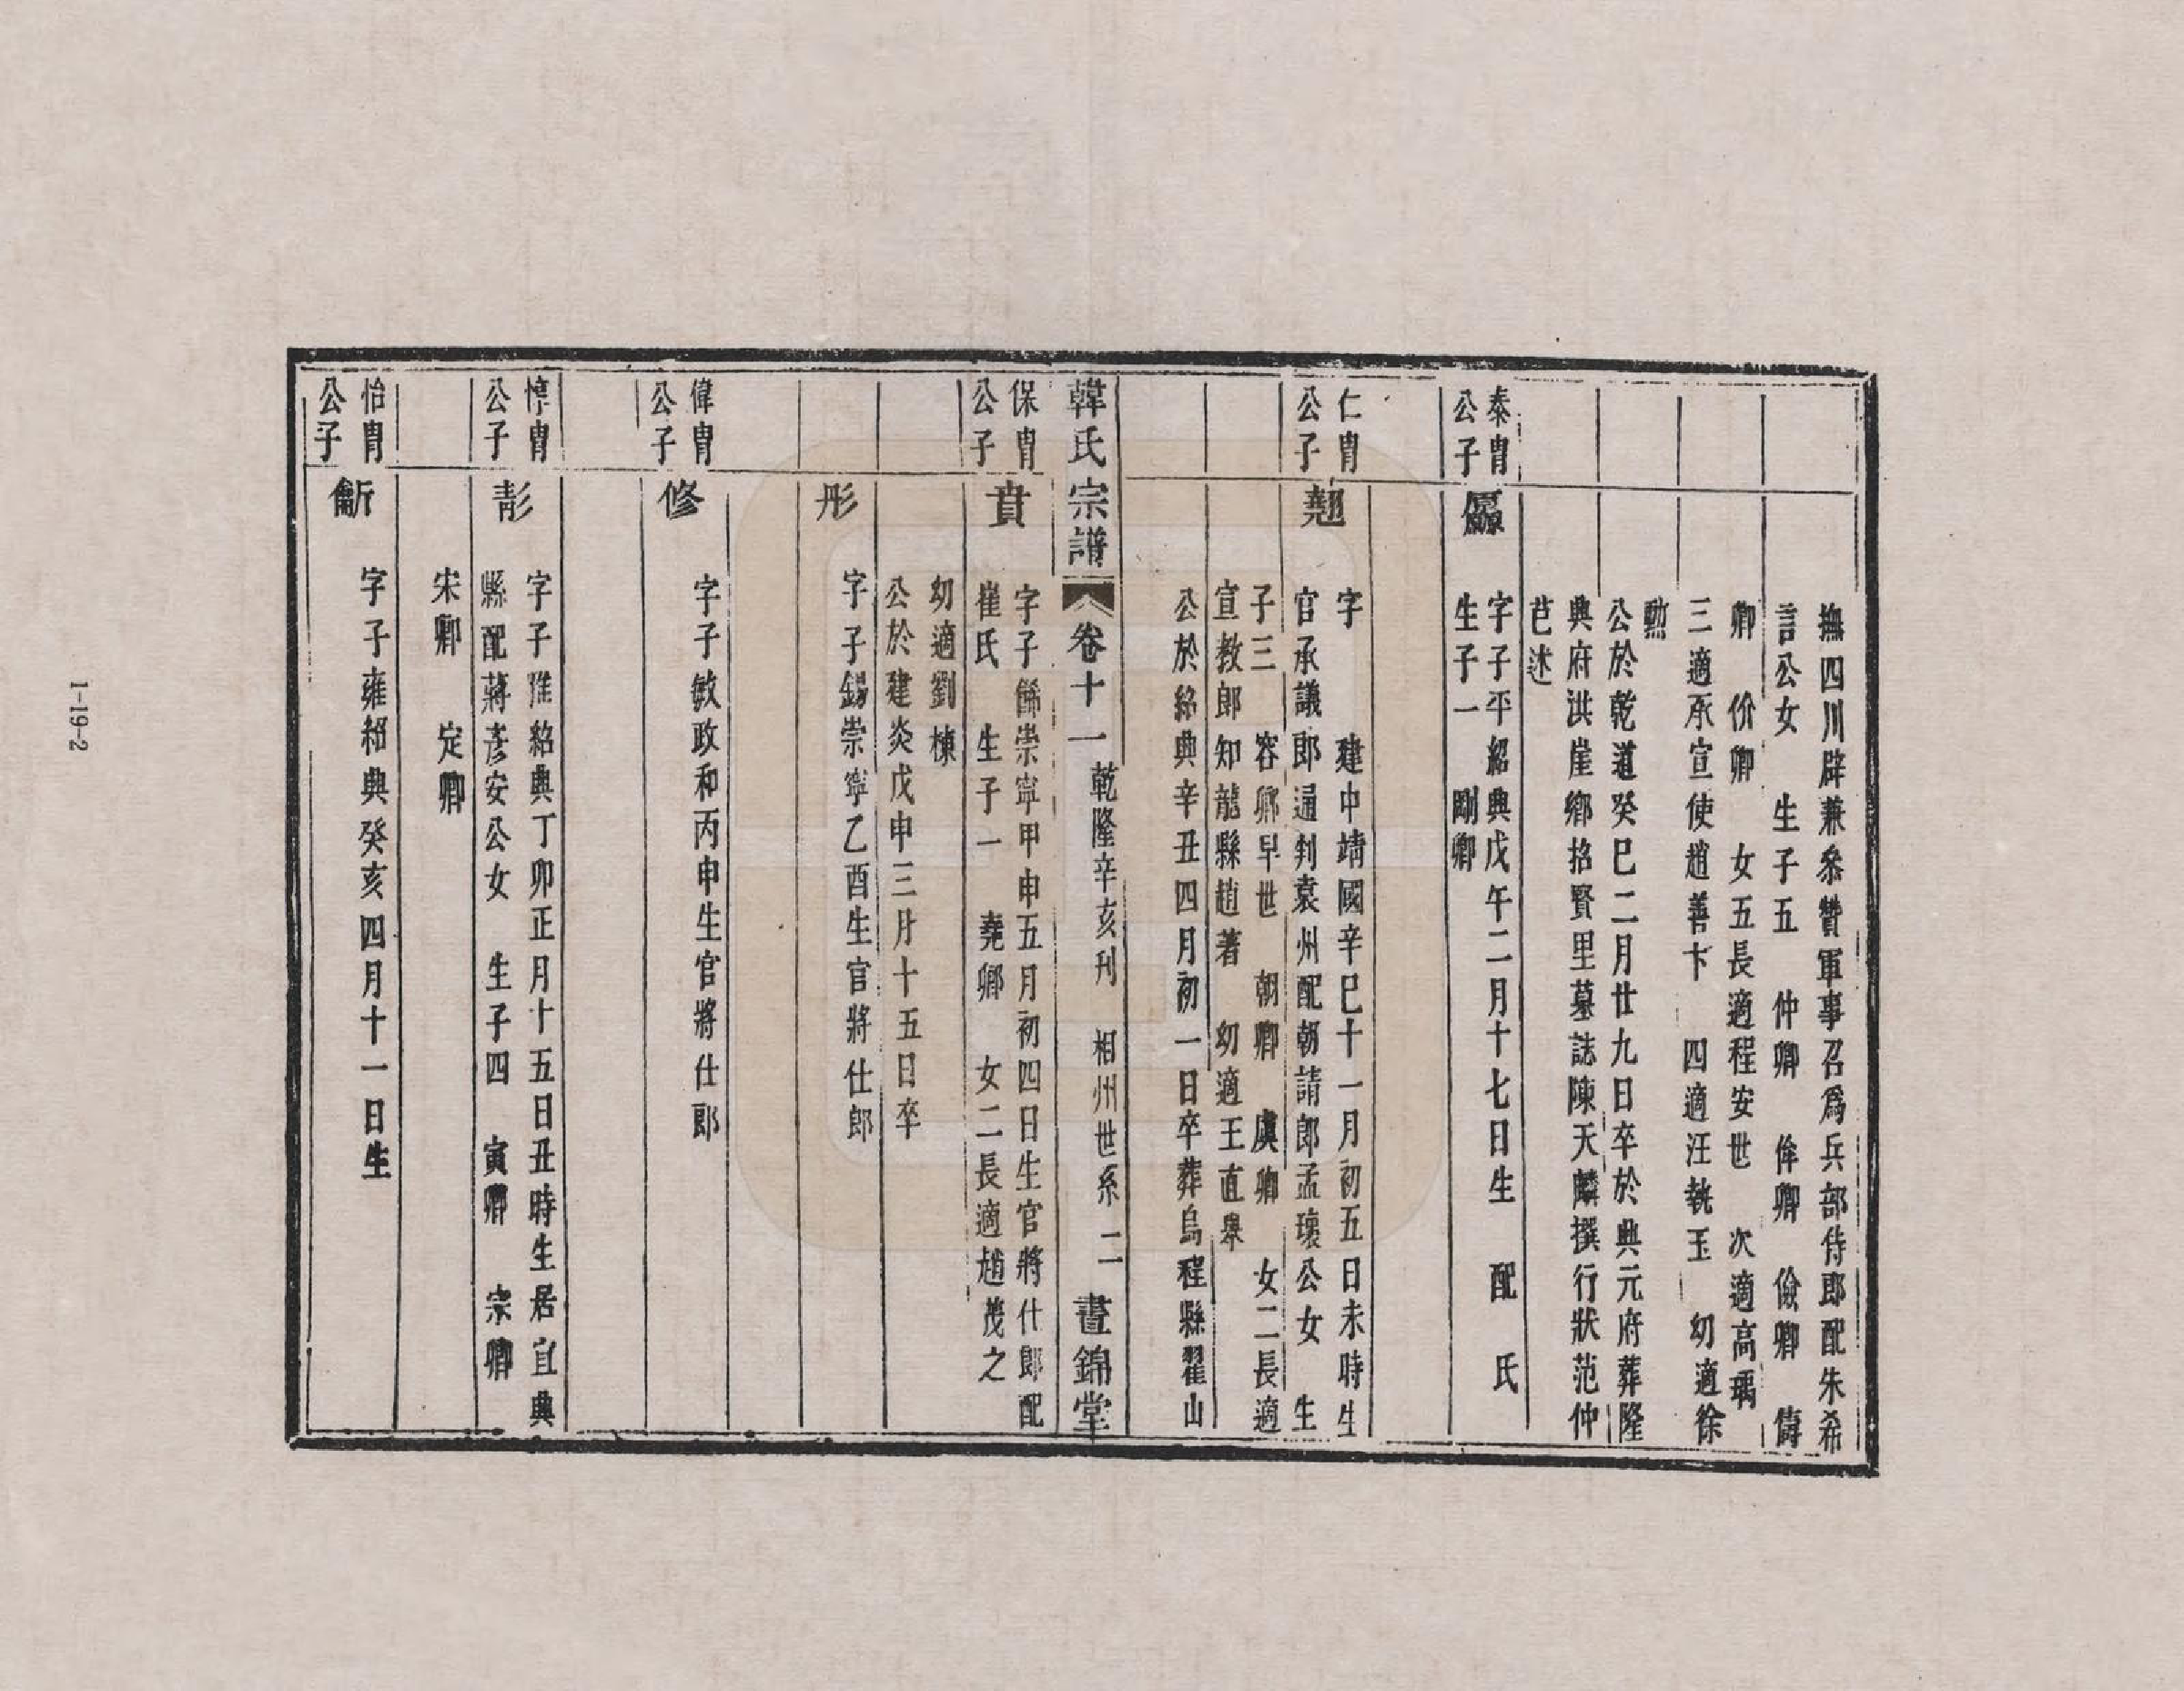 撫四川辟兼叅贊軍事召爲兵部侍郎配朱希
言公女 生子五 仲卿 侔卿 儉卿 儔
卿 价卿 女五長適程安世 次適高瑀
三適承宣使趙善卞 四適汪執玉 幼適徐
勲
公於乾道癸巳二月廿九日卒於興元府葬隆
興府洪崖鄉招賢里墓誌陳天麟撰行狀范仲
芑述
泰胄
公子
字子平紹興戊午二月十七日生 配 氏
生子一 剛卿
仁胄
公子
翹
字 建中靖國辛巳十一月初五日未時生
官承議郎通判袁州配朝請郎孟瓌公女 生
子三 容卿早世 朝卿 虞卿 女二長適
宣教郎知龍縣趙著 幼適王直舉
公於紹興辛丑四月初一日卒葬烏程縣翟山
韓氏宗譜 卷十一 乾隆辛亥刊 相州世系 二 晝錦堂
保胄
公子
賁
字子餙崇寧甲申五月初四日生官將仕郎配
崔氏 生子一 堯卿 女二長適趙茂之
幼適劉棟
公於建炎戊申三月十五日卒
彤
字子錫崇寧乙酉生官將仕郎
偉胄
公子
修
字子敏政和丙申生官將仕郎
惇胄
公子
彰
字子惟紹興丁卯正月十五日丑時生居宜興
縣配蔣彥安公女 生子四 寅卿 宗卿
宋卿 定卿
怡胄
公子
龂
字子雍紹興癸亥四月十一日生
1-19-2